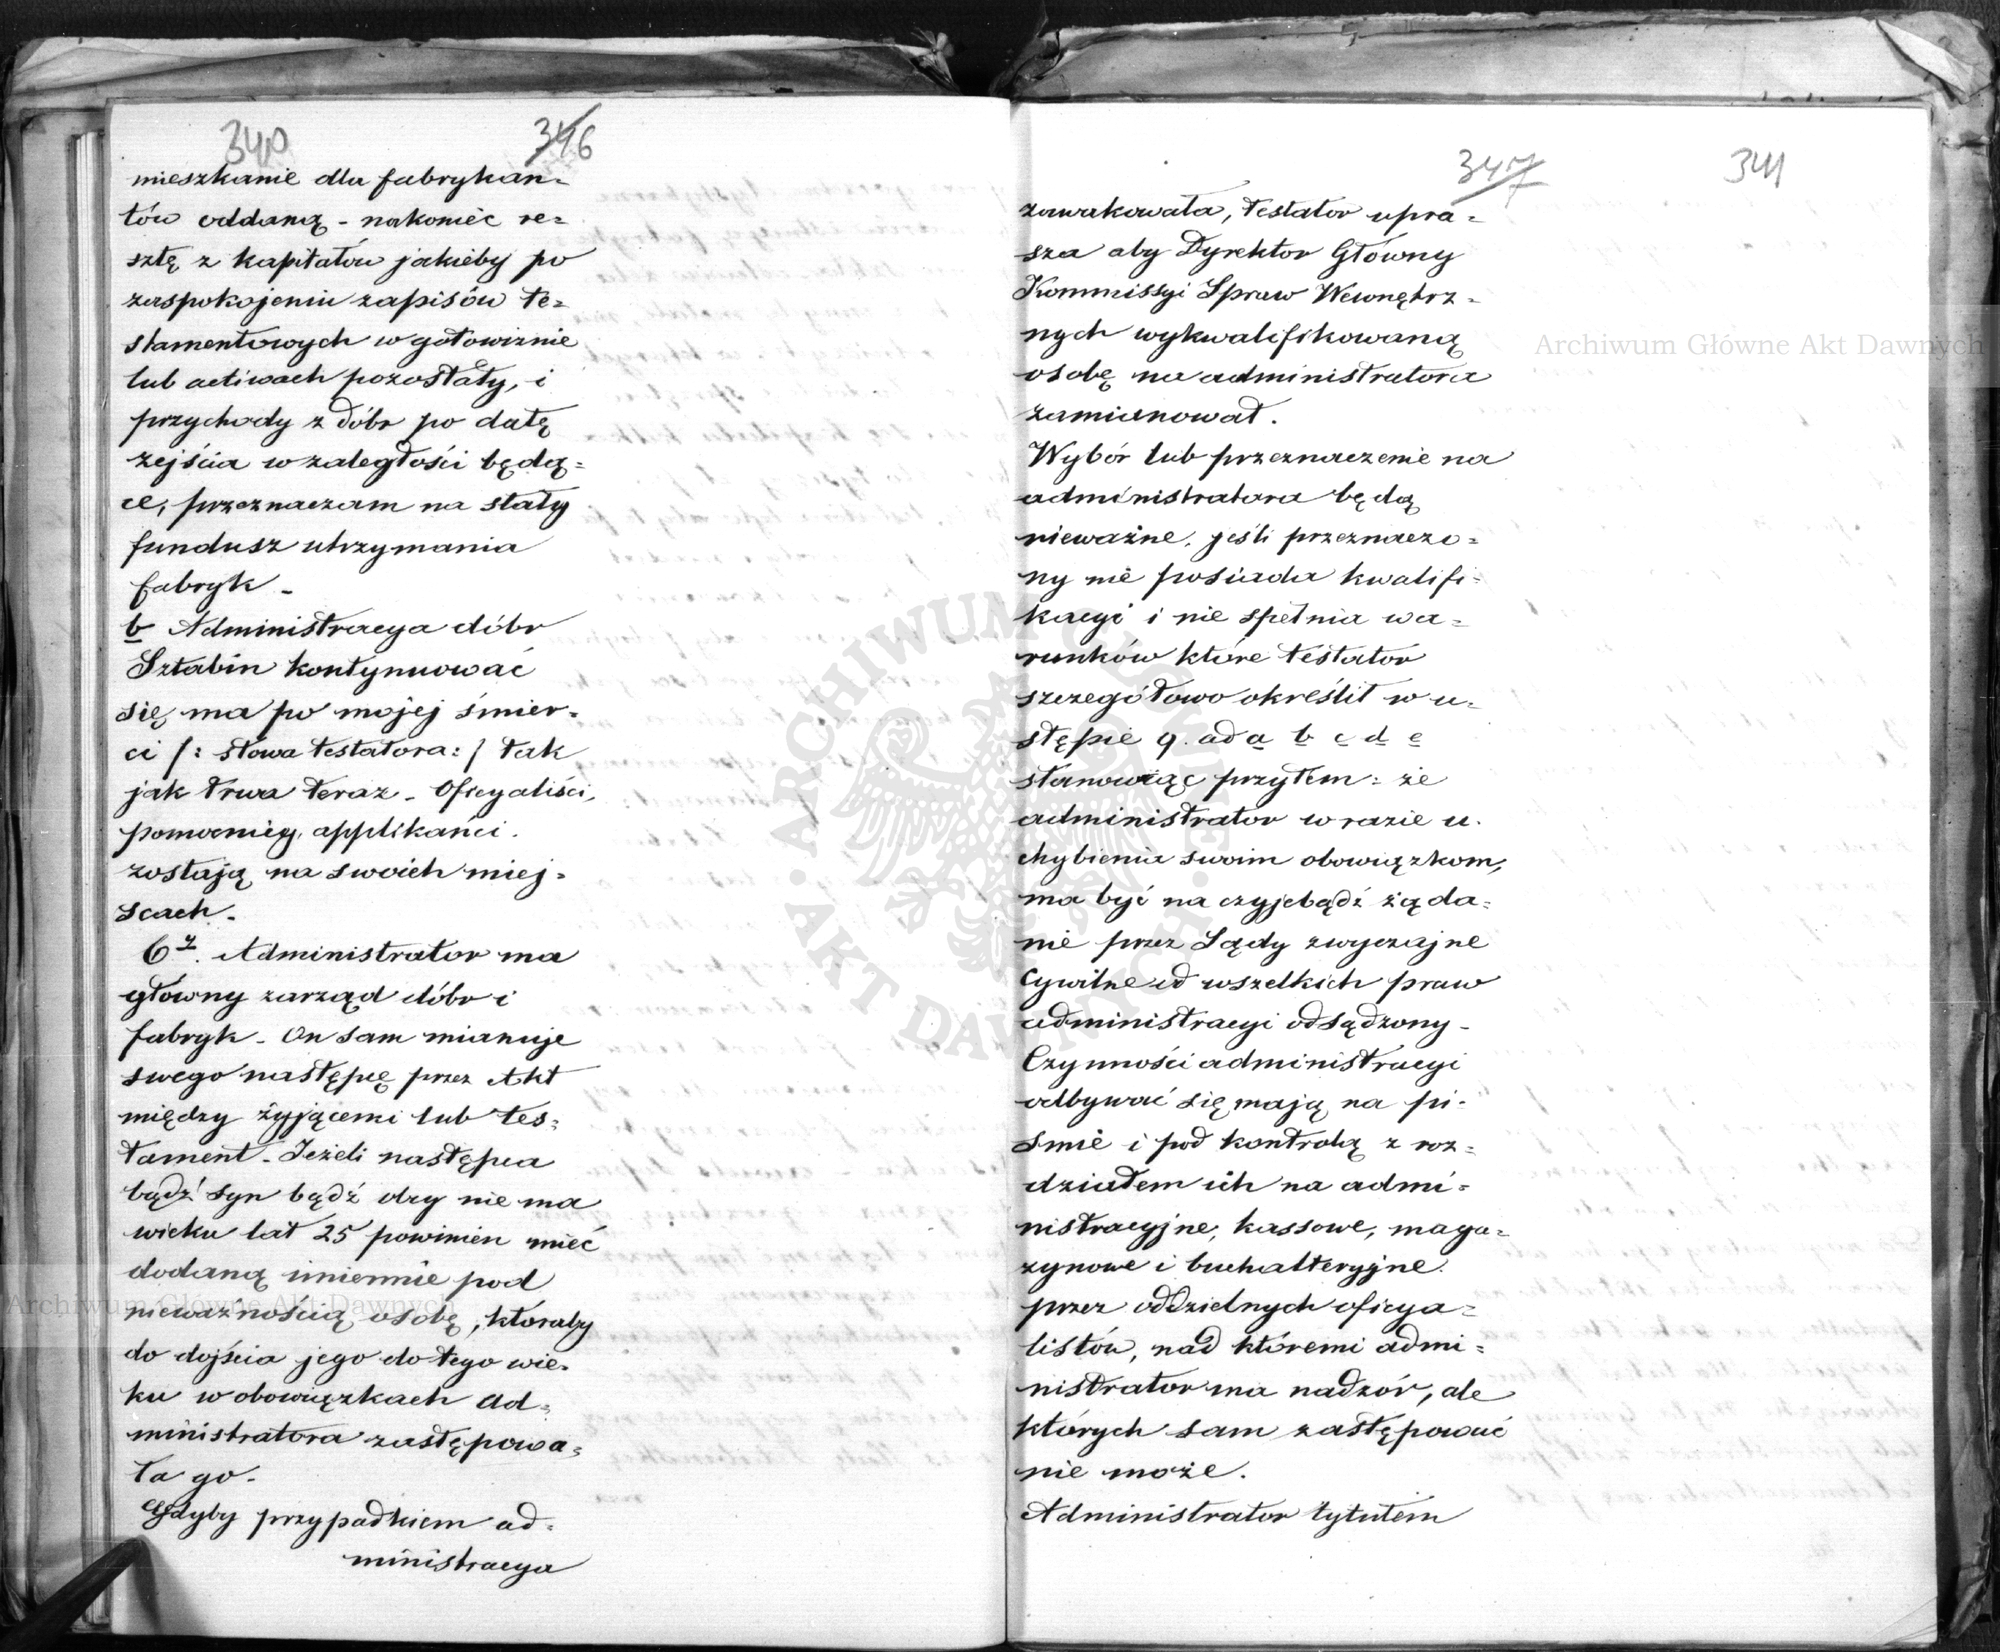 340 346
mieszkanie dla fabrykan=
tów oddaną - nakoniec re=
sztę z kapitałów jakieby po
zaspokojeniu zapisów te=
stamentowych w gotowiznie
lub activach pozostały, i
przychody z dóbr po datę
zejścia w zaległości będą=
ce, przeznaczam na stały
fundusz utrzymania
fabryk -
b Administracya dóbr
Sztabin kontynuować
się ma po mojej śmier-
ci /: słowa testatora: / tak
jak trwa teraz - Oficyaliści,
pomocnicy, applikańci.
zostają na swoich miej-
scach -
6º. Administrator ma
główny zarząd dóbr i
fabryk - On sam mianuje
swego następcę przez Akt
między żyjącemi lub tes=
tament - Jeżeli następca
bądź syn bądź obcy nie ma
wieku lat 25 powinien mieć
dodaną imiennie pod
nieważnością osobę, któraby
do dojścia jego do tego wie-
ku w obowiązkach ad=
ministratora zastępowa=
ła go -
Gdyby przypadkiem ad=
ministracya
347 341
zawakowała, testator upra=
sza aby Dyrektor Główny
Kommissyi Spraw Wewnętrz=
nych wykwalifikowaną
osobę na administratora
zamianował.
Wybór lub przeznaczenie na
administratora będą
nieważne, jeśli przeznaczo=
ny nie posiada kwalifi=
kacyi i nie spełnia wa=
runków które testator
szczegółowo określił w u-
stępie 9. ad a b c d e
stanowiąc przytem: że
administrator w razie u-
chybienia swoim obowiązkom,
ma być na czyjebądź żąda=
nie przez Sądy zwyczajne
Cywilne od wszelkich praw
administracyi odsądzony -
Czynności administracyi
odbywać się mają na pi-
śmie i pod kontrolą z roz=
działem ich na admi=
nistracyjne, kassowe, maga=
zynowe i buchalteryjne
przez oddzielnych oficya=
listów, nad któremi admi=
nistrator ma nadzór, ale
których sam zastępować
nie może.
Administrator tytułem
Archiwum Główne Akt Dawnych
Archiwum Główne Akt Dawnych
ARCHIWUM GŁÓWNE
AKT DAWNYCH